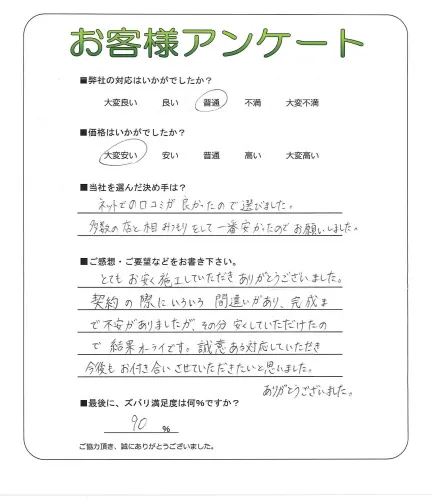 お客様アンケート
■弊社の対応はいかがでしたか？
大変良い 良い 普通 不満 大変不満
■価格はいかがでしたか？
大変安い 安い 普通 高い 大変高い
■当社を選んだ決め手は？
ネットでの口コミが良かったので選びました。
多数の店と相みつもりをして一番安かったのでお願いしました。
■ご感想・ご要望などをお書き下さい。
とてもお安く施工していただきありがとうございました。
契約の際にいろいろ間違いがあり、完成ま
で不安がありましたが、その分安くしていただけたの
で結果オーライです。誠意ある対応していただき
今後もお付き合いさせていただきたいと思いました。
ありがとうございました。
■最後に、ズバリ満足度は何%ですか？
90 %
ご協力頂き、誠にありがとうございました。